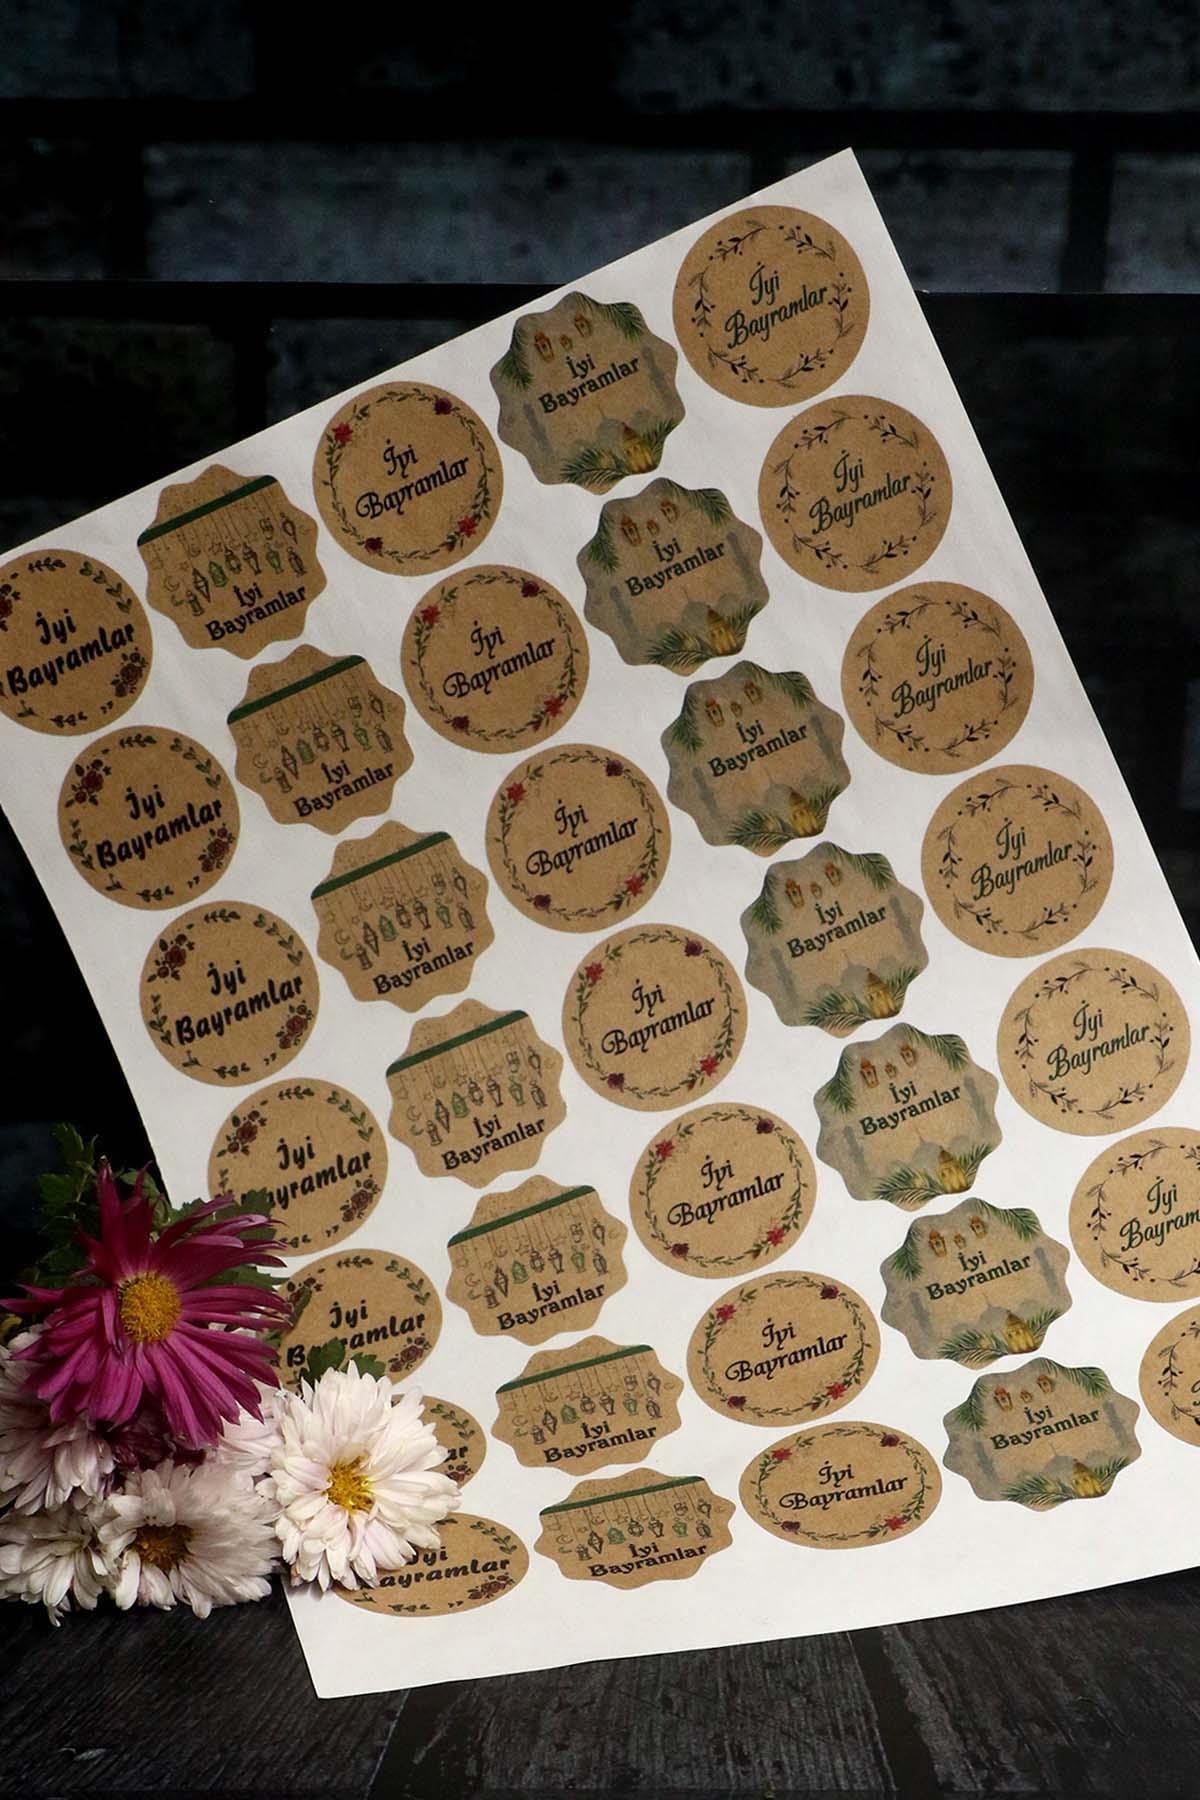 İyi
Bayramlar
İyi
Bayramlar
İyi
Bayramlar
İyi
ayramlar
İyi
B ramlar
yi
ayramlar
İyi
Bayramlar
İyi
Bayramlar
İyi
Bayramlar
İyi
Bayramlar
İyi
Bayramlar
İyi
Bayramlar
İyi
Bayramlar
İyi
Bayramlar
İyi
Bayramlar
İyi
Bayramlar
İyi
Bayramlar
İyi
Bayramlar
İyi
Bayramlar
İyi
Bayramlar
İyi
Bayramlar
İyi
Bayramlar
İyi
Bayramlar
İyi
Bayramlar
İyi
Bayramlar
İyi
Bayramlar
İyi
Bayramlar
İyi
Bayramlar
İyi
Bayramlar
İyi
Bayramlar
İyi
Bayramlar
İyi
Bayramlar
İyi
Bayram